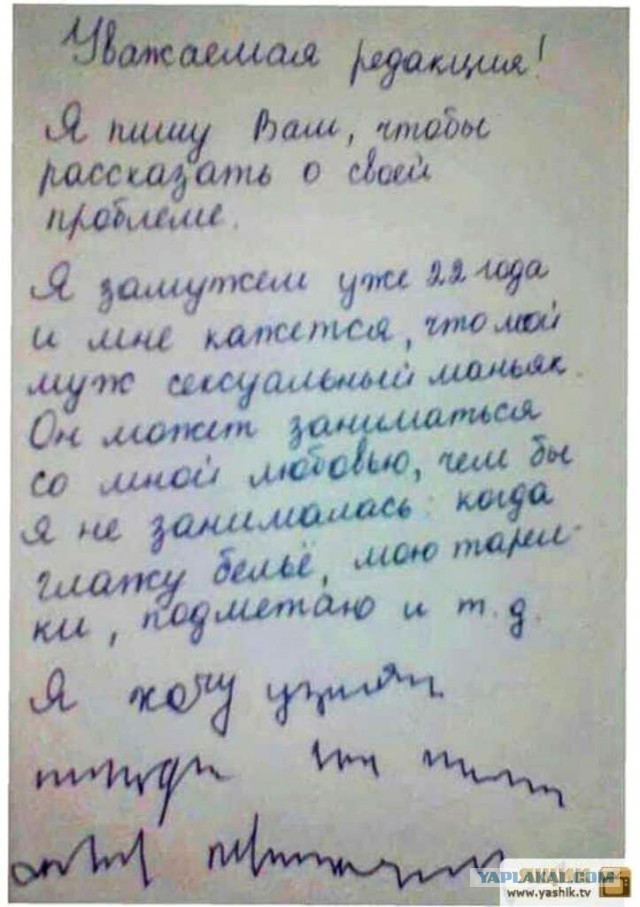 Уважаемая редакция!
Я пишу Вам, чтобы
рассказать о своей
проблеме.
Я замужем уже 22 года
и мне кажется, что мой
муж сексуальный маньяк.
Он может заниматься
со мной любовью, чем бы
я не занималась: когда
глажу бельё, мою тарел-
ки, подметаю и т.д.
Я хочу
YAPLAKAL.COM
www.yashik.tv